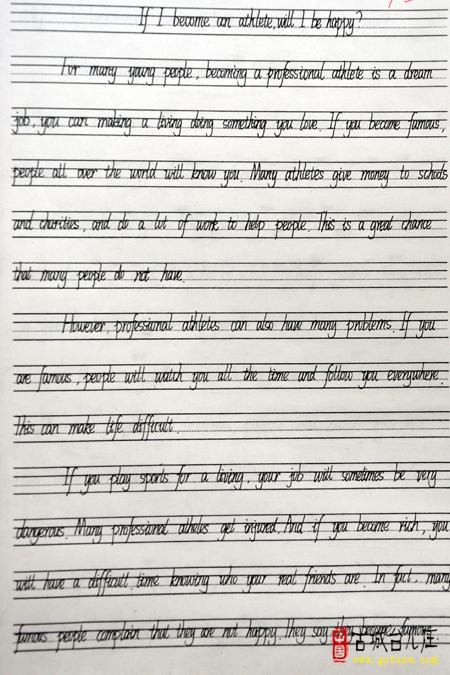 If I become an athlete, will I be happy?
For many young people, becoming a professional athlete is a dream
job, you can making a living doing something you love. If you become famous,
people all over the world will know you. Many athletes give money to schools
and charities, and do a lot of work to help people. This is a great chance
that many people do not have.
However, professional athletes can also have many problems. If you
are famous, people will watch you all the time and follow you everywhere.
This can make life difficult.
If you play sports for a living, your job will sometimes be very
dangerous. Many professional atheletes get injured. And if you become rich, you
will have a difficult time knowing who your real friends are. In fact, many
famous people complain that they are not happy. They say they become famous.
中国 古城台儿庄